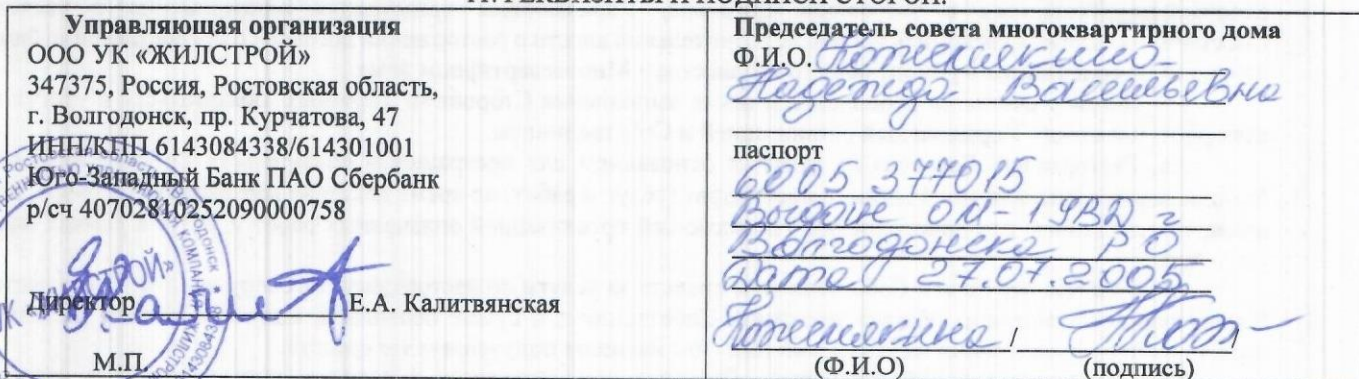 Управляющая организация
ООО УК «ЖИЛСТРОЙ»
347375, Россия, Ростовская область,
г. Волгодонск, пр. Курчатова, 47
ИНН/КПП 6143084338/614301001
Юго-Западный Банк ПАО Сбербанк
р/сч 40702810252090000758
Директор Е.А. Калитвянская
М.П.
Председатель совета многоквартирного дома
Ф.И.О.
Надежда Васильевна
паспорт
6005 377015
Выдан ОМ-1 УВД г.
Волгодонска Р О
Дата 27.07 2005
/ /
(Ф.И.О) (подпись)